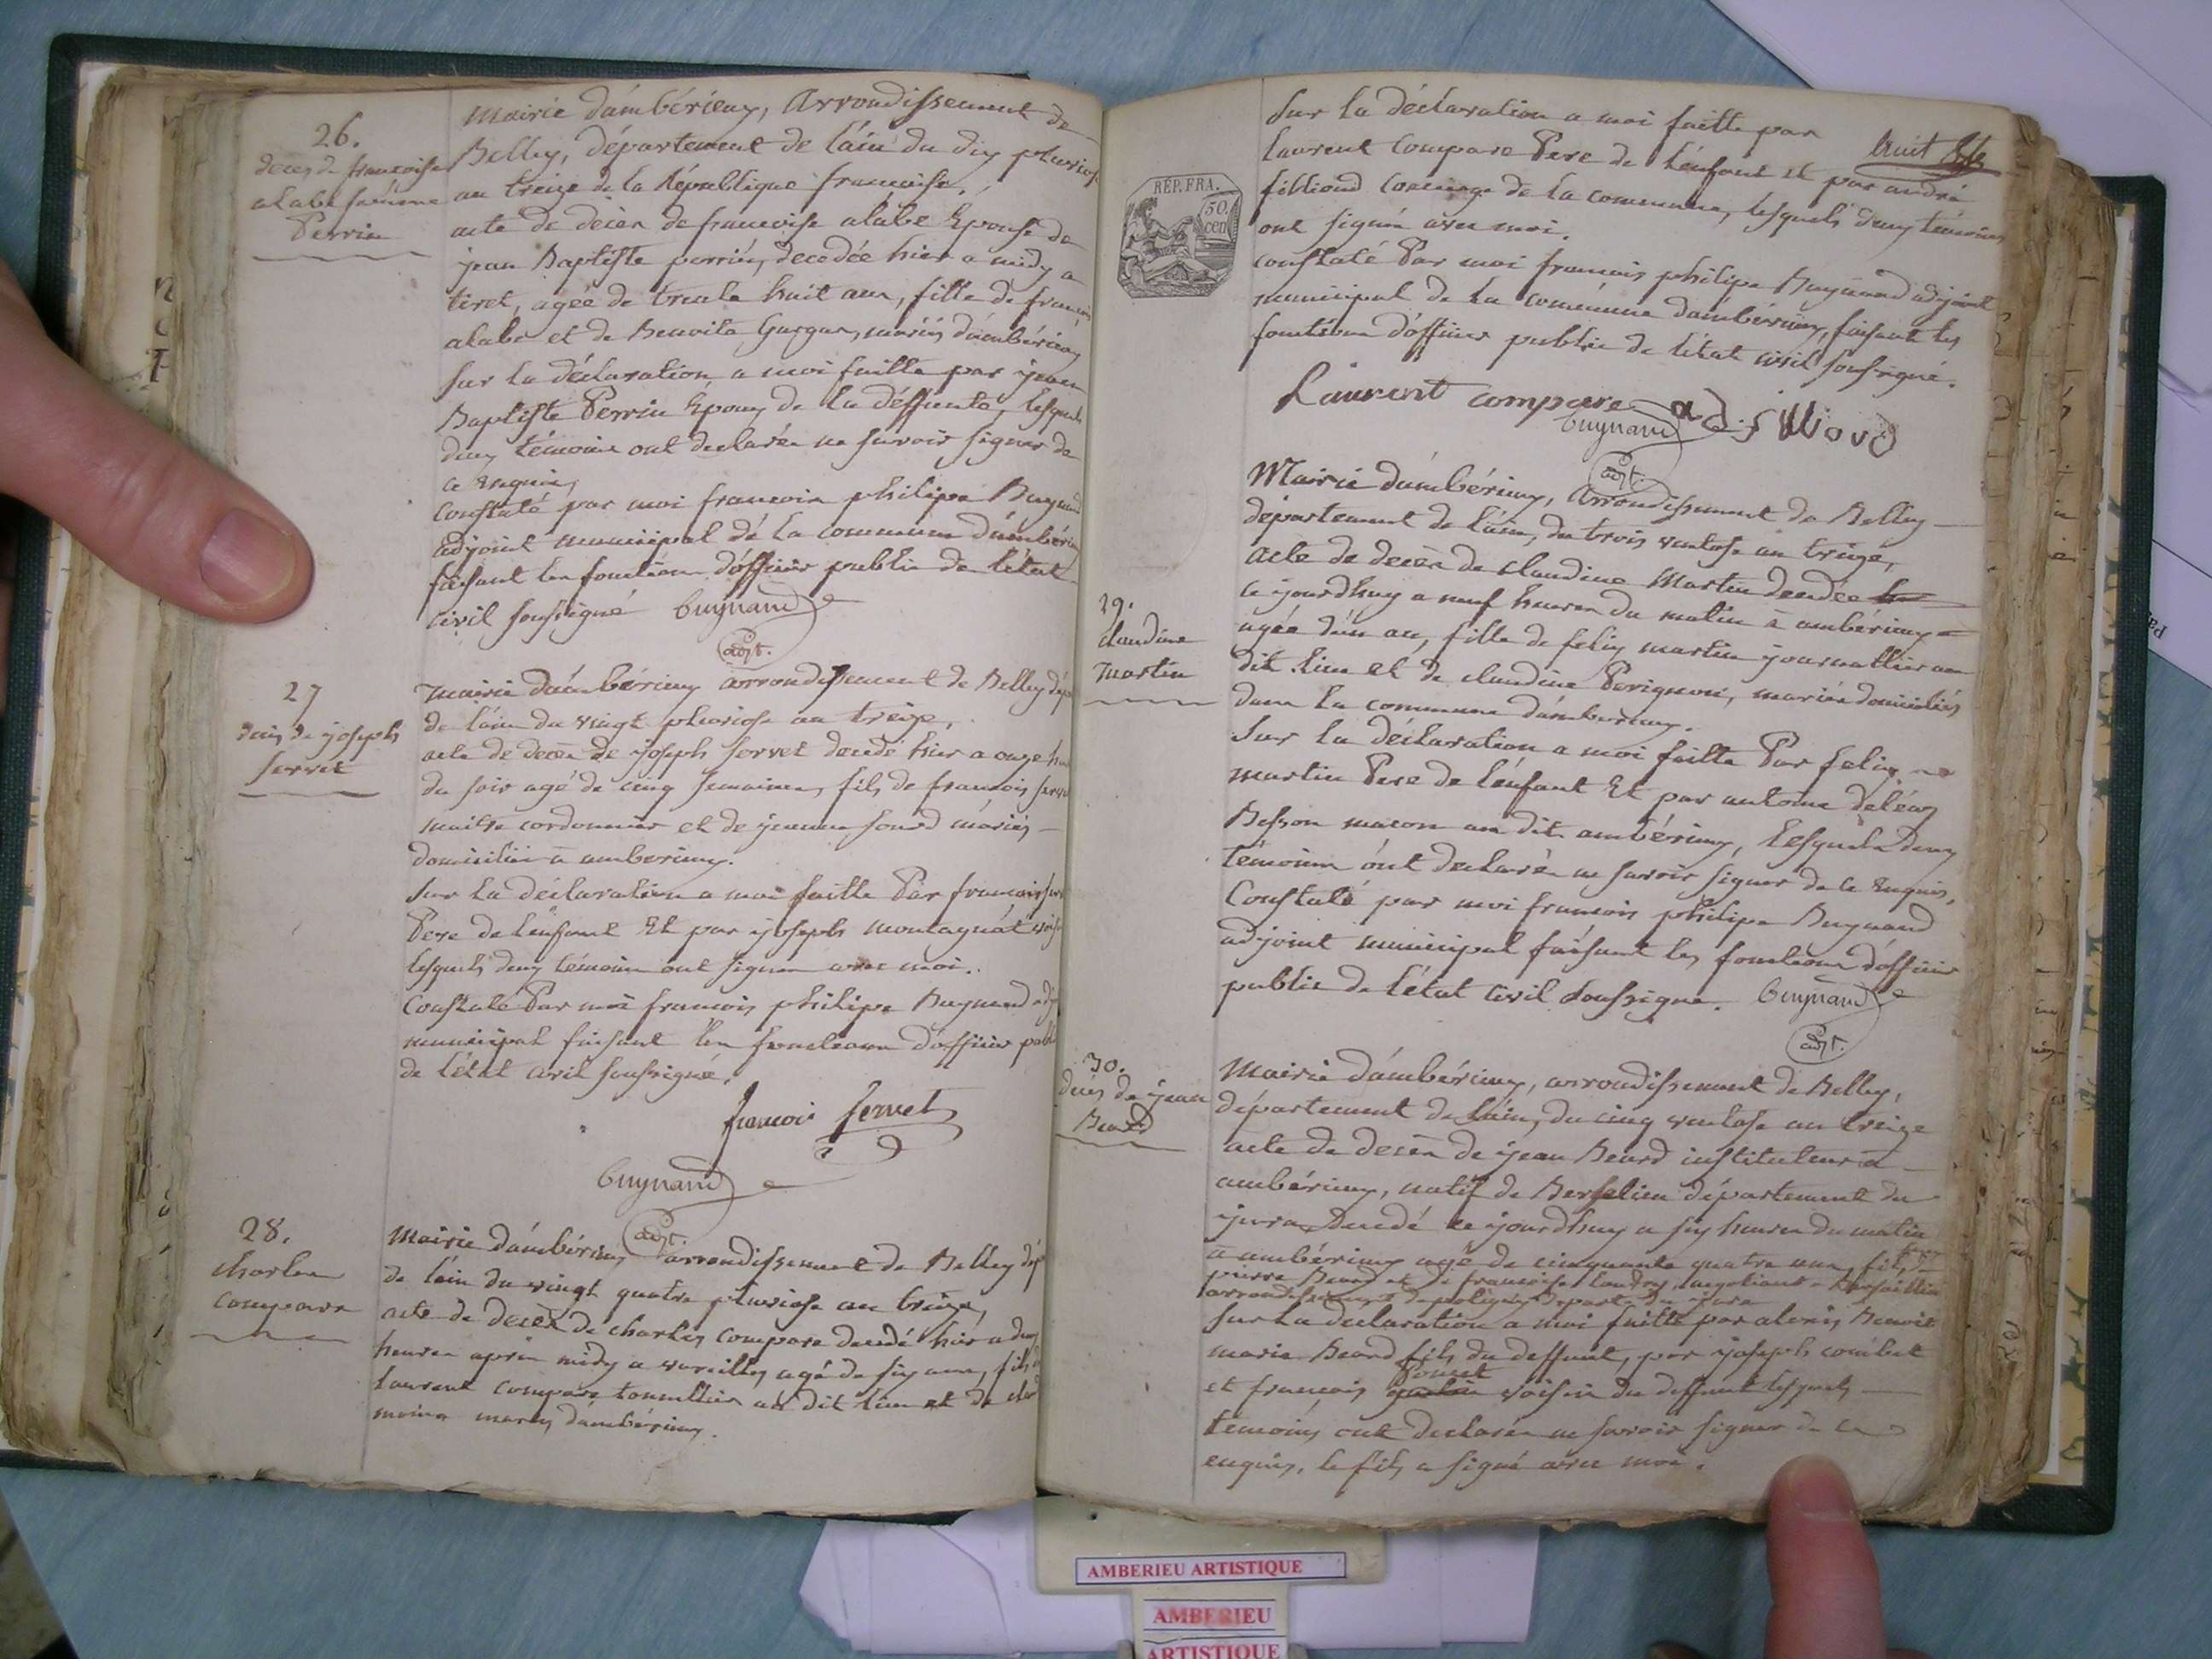 26.
deces de francoise
alabe femme
Perrin
Mairie d'ambérieux, Arrondissement de
Belley, département de l'ain du dix pluviose
an treize de la République francoise.
acte de décès de francoise alabe Epouse de
jean Baptiste perrin, decedée hier a midy a
tiret, agée de trente huit ans, fille de francois
alabe et de Benoite Gargan, mariés d'ambérieux
Sur la déclaration a moi faitte par jean
Baptiste Perrin Epoux de la déffunte, lesquels
deux témoins ont declarés ne savoir signer de
ce enquis,
Constaté par moi francois philipe Buynand
adjoint municipal de la commune d'ambérieux
faisant les fonctions d'officier public de l'état
civil soussigné Buynand
adjt.
27
deces de joseph
servet
Mairie d'ambérieux arrondissement de Belley dép
de l'ain du vingt pluviose an treize,
acte de decès de joseph servet decedé hier a onze h
du soir agé de cinq semaines, fils de francois serv
maitre cordonnier et de jeanne sourd mariés
domiciliés à amberieux.
Sur la déclaration a moi faitte Par francois ser
Pere de l'enfant Et par joseph montagnat vois
lesquels deux témoins ont signés avec moi.
Constaté Par moi francois philipe Buynand adj
municipal faisant les fonctions d'officier publ
de l'état civil soussigné.
francois servet
Buynand
adjt.
28.
charles
compare
Mairie d'ambérieux arrondissement de Belley dép
de l'ain du vingt quatre pluviose an treize,
acte de decès de charles compare decedé hier a deux
heures après midy a vareilles, agé de six ans, fils de
laurent compare tonnellier au dit lieu et de clau
moine mariés d'ambérieux.
huit
Sur la déclaration a moi faitte par
laurent Compare Pere de l'enfant et par andré
filliond concierge de la commune, lesquels deux témoins
ont signés avec moi.
constaté Par moi francois philipe Buynand adjoint
municipal de la commune d'ambérieux, faisant les
fonctions d'officier public de l'état civil soussigné.
RÉP. FRA.
50.
cen
Laurent compare ad. filliovd
Buynand
adjt.
29.
claudine
martin
Mairie d'ambérieux, Arrondissement de Belley
département de l'ain, du trois ventose an treize,
acte de decès de claudine Martin decedée
ce jourd'huy a neuf heures du matin à ambérieux
agée d'un an, fille de felix martin journallier au
dit lieu et de claudine Parignon, mariés domiciliés
dans la commune d'amberieux.
Sur la déclaration a moi faitte Par felix
martin Pere de l'enfant Et par antoine deléaz
Besson macon au dit ambérieux, lesquels deux
témoins ont declarés ne savoir signer de ce enquis,
Constaté par moi francois philipe Buynand
adjoint municipal faisant les fonctions d'officier
public de l'état civil soussigné. Buynand
adjt.
30.
deces de jean
Beard
Mairie d'ambérieux, arrondissement de Belley,
département de l'ain, du cinq ventose an treize
acte de decès de jean Beard instituteur a
ambérieux, natif de Bersalien département du
jura decedé ce jourd'huy a six heures du matin
a ambérieux agé de cinquante quatre ans, fils de
pierre Beard et de francoise Landry, negotiant a Bersaillin
arrondissement de poligny departt du jura
Sur la declaration a moi faitte par alexis Benoit
marie Beard fils du deffunt, par joseph combet
et francois Poncet voisin du deffunt lesquels
témoins ont declarés ne savoir signer de ce
enquis, le fils a signé avec moi.
AMBERIEU ARTISTIQUE
AMBERIEU
ARTISTIQUE